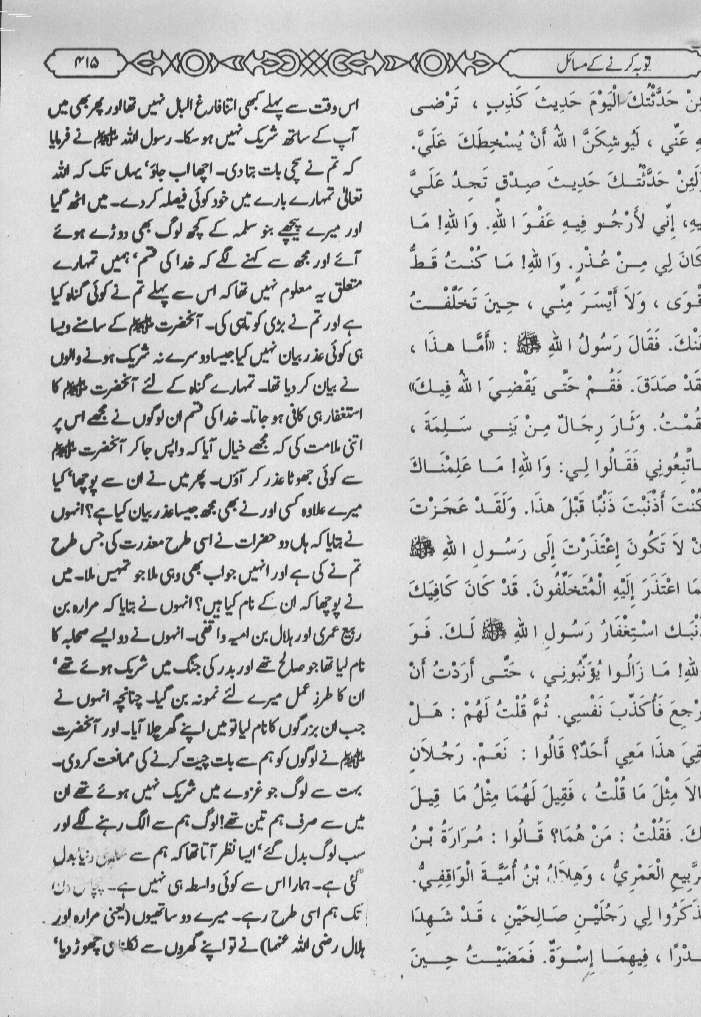 توبہ کرنے کے مسائل
۴۱۵
حَدَّثْتُكَ الْيَوْمَ حَدِيثَ كَذِبٍ ، تَرْضَى
عَنِّي ، لَيُوشِكَنَّ اللهُ أَنْ يُسْخِطَكَ عَلَيَّ.
وَلَئِنْ حَدَّثْتُكَ حَدِيثَ صِدْقٍ تَجِدُ عَلَيَّ
إِنِّي لَأَرْجُو فِيهِ عَفْوَ اللهِ. وَاللهِ! مَا
كَانَ لِي مِنْ عُذْرٍ. وَاللهِ! مَا كُنْتُ قَطُّ
وَلاَ أَيْسَرَ مِنِّي ، حِينَ تَخَلَّفْتُ
عَنْكَ. فَقَالَ رَسُولُ اللهِ ﷺ : «أَمَّا هذَا ،
صَدَقَ. فَقُمْ حَتَّى يَقْضِيَ اللهُ فِيكَ»
وَثَارَ رِجَالٌ مِنْ بَنِي سَلِمَةَ ،
فَقَالُوا لِي: وَاللهِ! مَا عَلِمْنَاكَ
كُنْتَ أَذْنَبْتَ ذَنْبًا قَبْلَ هذَا. وَلَقَدْ عَجَزْتَ
لاَ تَكُونَ اعْتَذَرْتَ إِلَى رَسُولِ اللهِ ﷺ
اعْتَذَرَ إِلَيْهِ الْمُتَخَلِّفُونَ. قَدْ كَانَ كَافِيكَ
اسْتِغْفَارُ رَسُولِ اللهِ ﷺ لَكَ. فَوَ
اللهِ! مَا زَالُوا يُؤَنِّبُونِي ، حَتَّى أَرَدْتُ أَنْ
فَأُكَذِّبَ نَفْسِي. ثُمَّ قُلْتُ لَهُمْ : هَلْ
هَذَا مَعِي أَحَدٌ؟ قَالُوا : نَعَمْ. رَجُلاَنِ
مِثْلَ مَا قُلْتُ ، فَقِيلَ لَهُمَا مِثْلُ مَا قِيلَ
فَقُلْتُ : مَنْ هُمَا؟ قَالُوا : مُرَارَةُ بْنُ
الْعَمْرِيُّ ، وَهِلاَلُ بْنُ أُمَيَّةَ الْوَاقِفِيُّ.
لِي رَجُلَيْنِ صَالِحَيْنِ ، قَدْ شَهِدَا
فِيهِمَا إِسْوَةٌ. فَمَضَيْتُ حِينَ
اس وقت سے پہلے کبھی اتنا فارغ البال نہیں تھا اور پھر بھی میں
آپ کے ساتھ شریک نہیں ہو سکا۔ رسول اللہ ﷺ نے فرمایا
کہ تم نے سچی بات بتا دی۔ اچھا اب جاؤ‘ یہاں تک کہ اللہ
تعالیٰ تمہارے بارے میں خود کوئی فیصلہ کر دے۔ میں اٹھ گیا
اور میرے پیچھے بنو سلمہ کے کچھ لوگ بھی دوڑے ہوئے
آئے اور مجھ سے کہنے لگے کہ خدا کی قسم‘ ہمیں تمہارے
متعلق یہ معلوم نہیں تھا کہ اس سے پہلے تم نے کوئی گناہ کیا
ہے اور تم نے بڑی کوتاہی کی۔ آنحضرت ﷺ کے سامنے ویسا
ہی کوئی عذر بیان نہیں کیا جیسا دوسرے نہ شریک ہونے والوں
نے بیان کر دیا تھا۔ تمہارے گناہ کے لئے آنحضرت ﷺ کا
استغفار ہی کافی ہو جاتا۔ خدا کی قسم ان لوگوں نے مجھے اس پر
اتنی ملامت کی کہ مجھے خیال آیا کہ واپس جا کر آنحضرت ﷺ
سے کوئی جھوٹا عذر کر آؤں۔ پھر میں نے ان سے پوچھا‘ کیا
میرے علاوہ کسی اور نے بھی مجھ جیسا عذر بیان کیا ہے؟ انہوں
نے بتایا کہ ہاں دو حضرات نے اسی طرح معذرت کی جس طرح
تم نے کی ہے اور انہیں جواب بھی وہی ملا جو تمہیں ملا۔ میں
نے پوچھا کہ ان کے نام کیا ہیں؟ انہوں نے بتایا کہ مرارہ بن
ربیع عمری اور ہلال بن امیہ واقفی۔ انہوں نے دو ایسے صحابہ کا
نام لیا تھا جو صالح تھے اور بدر کی جنگ میں شریک ہوئے تھے‘
ان کا طرز عمل میرے لئے نمونہ بن گیا۔ چنانچہ انہوں نے
جب ان بزرگوں کا نام لیا تو میں اپنے گھر چلا آیا۔ اور آنحضرت
ﷺ نے لوگوں کو ہم سے بات چیت کرنے کی ممانعت کر دی۔
بہت سے لوگ جو غزوے میں شریک نہیں ہوئے تھے ان
میں سے صرف ہم تین تھے! لوگ ہم سے الگ رہنے لگے اور
سب لوگ بدل گئے‘ ایسا نظر آتا تھا کہ ہم سے دنیا بدل
گئی ہے۔ ہمارا اس سے کوئی واسطہ ہی نہیں ہے۔ پچاس دن
تک ہم اسی طرح رہے۔ میرے دو ساتھیوں (یعنی مرارہ اور
ہلال رضی اللہ عنہما) نے تو اپنے گھروں سے نکلنا ہی چھوڑ دیا‘